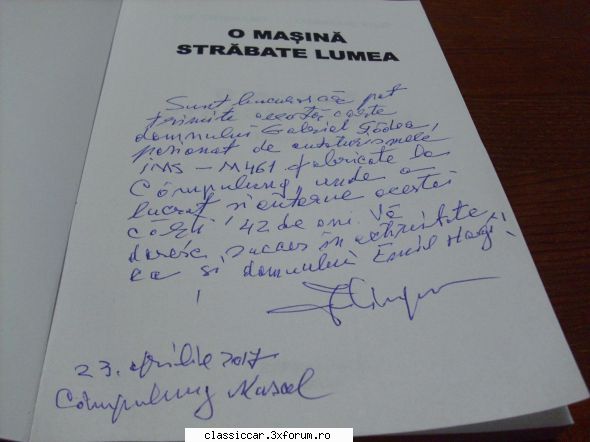 O MAȘINĂ
STRĂBATE LUMEA
Sunt bucuros că pot
trimite această carte
domnului Gabriel
pasionat de autoturismele
IMS – M461 fabricate la
Câmpulung, unde a
lucrat și autorul acestei
cărți 42 de ani. Vă
doresc succes în activitate
ca și domnului Emil
23. aprilie 2017
Câmpulung Muscel
classiccar.3xforum.ro